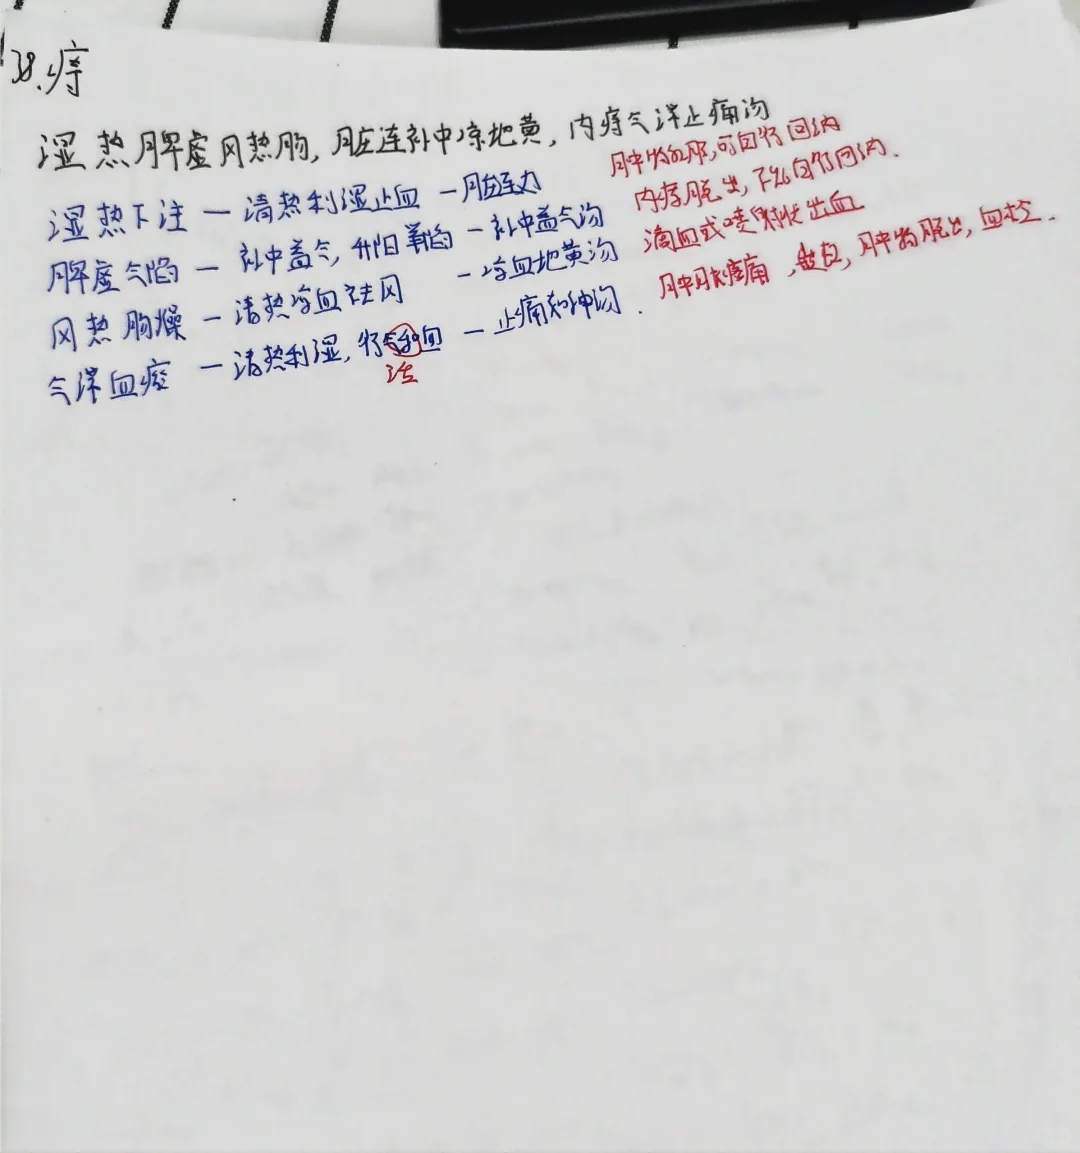 38.痔
湿热脾虚风热肠,脏连补中凉地黄,内痔气滞止痛汤
湿热下注—清热利湿止血—脏连丸 肿物外形,可自行回纳
脾虚气陷—补中益气,升阳举陷—补中益气汤 内痔脱出,不能自行回纳.
风热肠燥—清热凉血祛风—凉血地黄汤 滴血或喷射状出血
气滞血瘀—清热利湿,行气和血—止痛如神汤. 肿胀疼痛,肿物脱出,血栓.
活